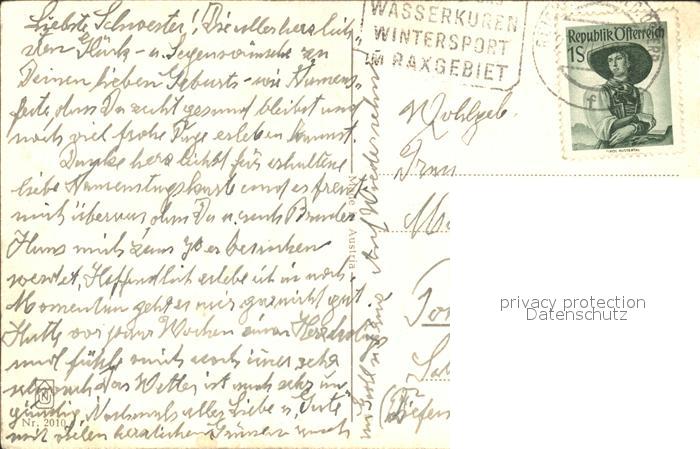 Liebste Schwester! Die allerherzlich-
sten Glück- u. Segenswünsche zu
Deinem lieben Geburts- wie Namens-
feste, dass Du recht gesund bleibst und
noch viel frohe Tage erleben kannst.
Danke herzlichst für erhaltene
liebe Namenstagskarte und es freut
mich überaus, dass Du u. auch Bruder
Hans mich zum 70er besuchen
werdet. Hoffentlich erlebe ich es noch.
Momentan geht es mir gar nicht gut.
Hatte vor paar Wochen einen
und fühle mich noch immer sehr
schwach. Das Wetter ist auch sehr un-
günstig. Nochmals alles Liebe u. Gute
mit vielen herzlichen Grüssen
Auf Wiedersehen
Nr. 2010
Made
Austria
WASSERKUREN
WINTERSPORT
IM RAXGEBIET
Republik Österreich
1S
f
Wohlgeb.
Frau
privacy protection
Datenschutz